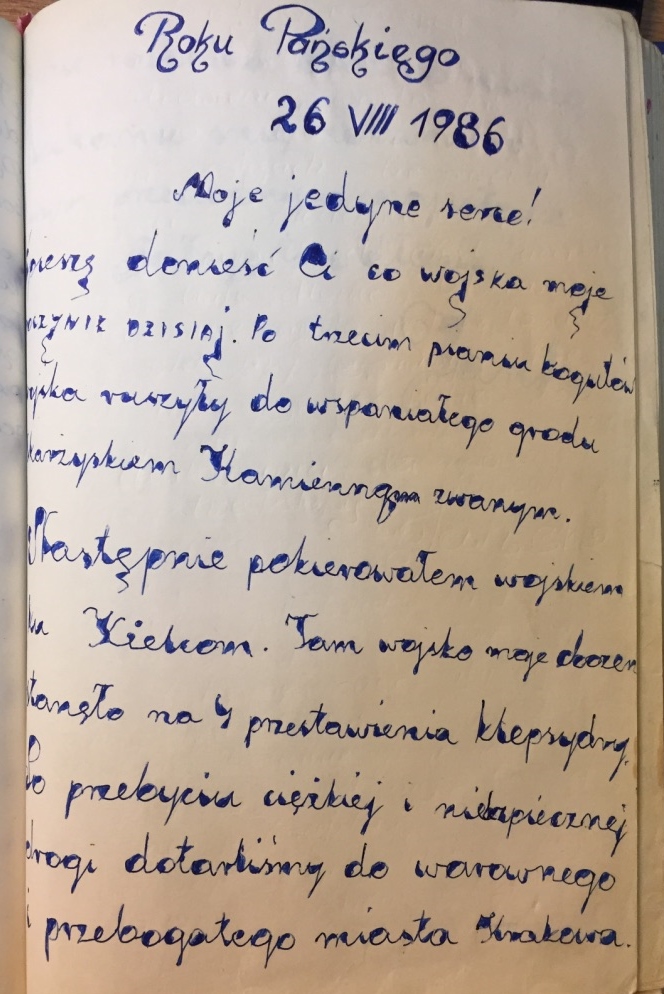 Roku Pańskiego
26 VIII 1986
Moje jedyne serce!
śpieszę donieść Ci co wojska moje
DZISIAJ. Po trzecim pianiu kogutów
ruszyły do wspaniałego grodu
Kamiennąm zwanym.
Następnie pokierowałem wojskiem
ku Kielcom. Tam wojsko moje obozem
stanęło na 4 przestawienia klepsydry.
Po przebyciu ciężkiej i niebezpiecznej
drogi dotarliśmy do warownego
i przebogatego miasta Krakowa.